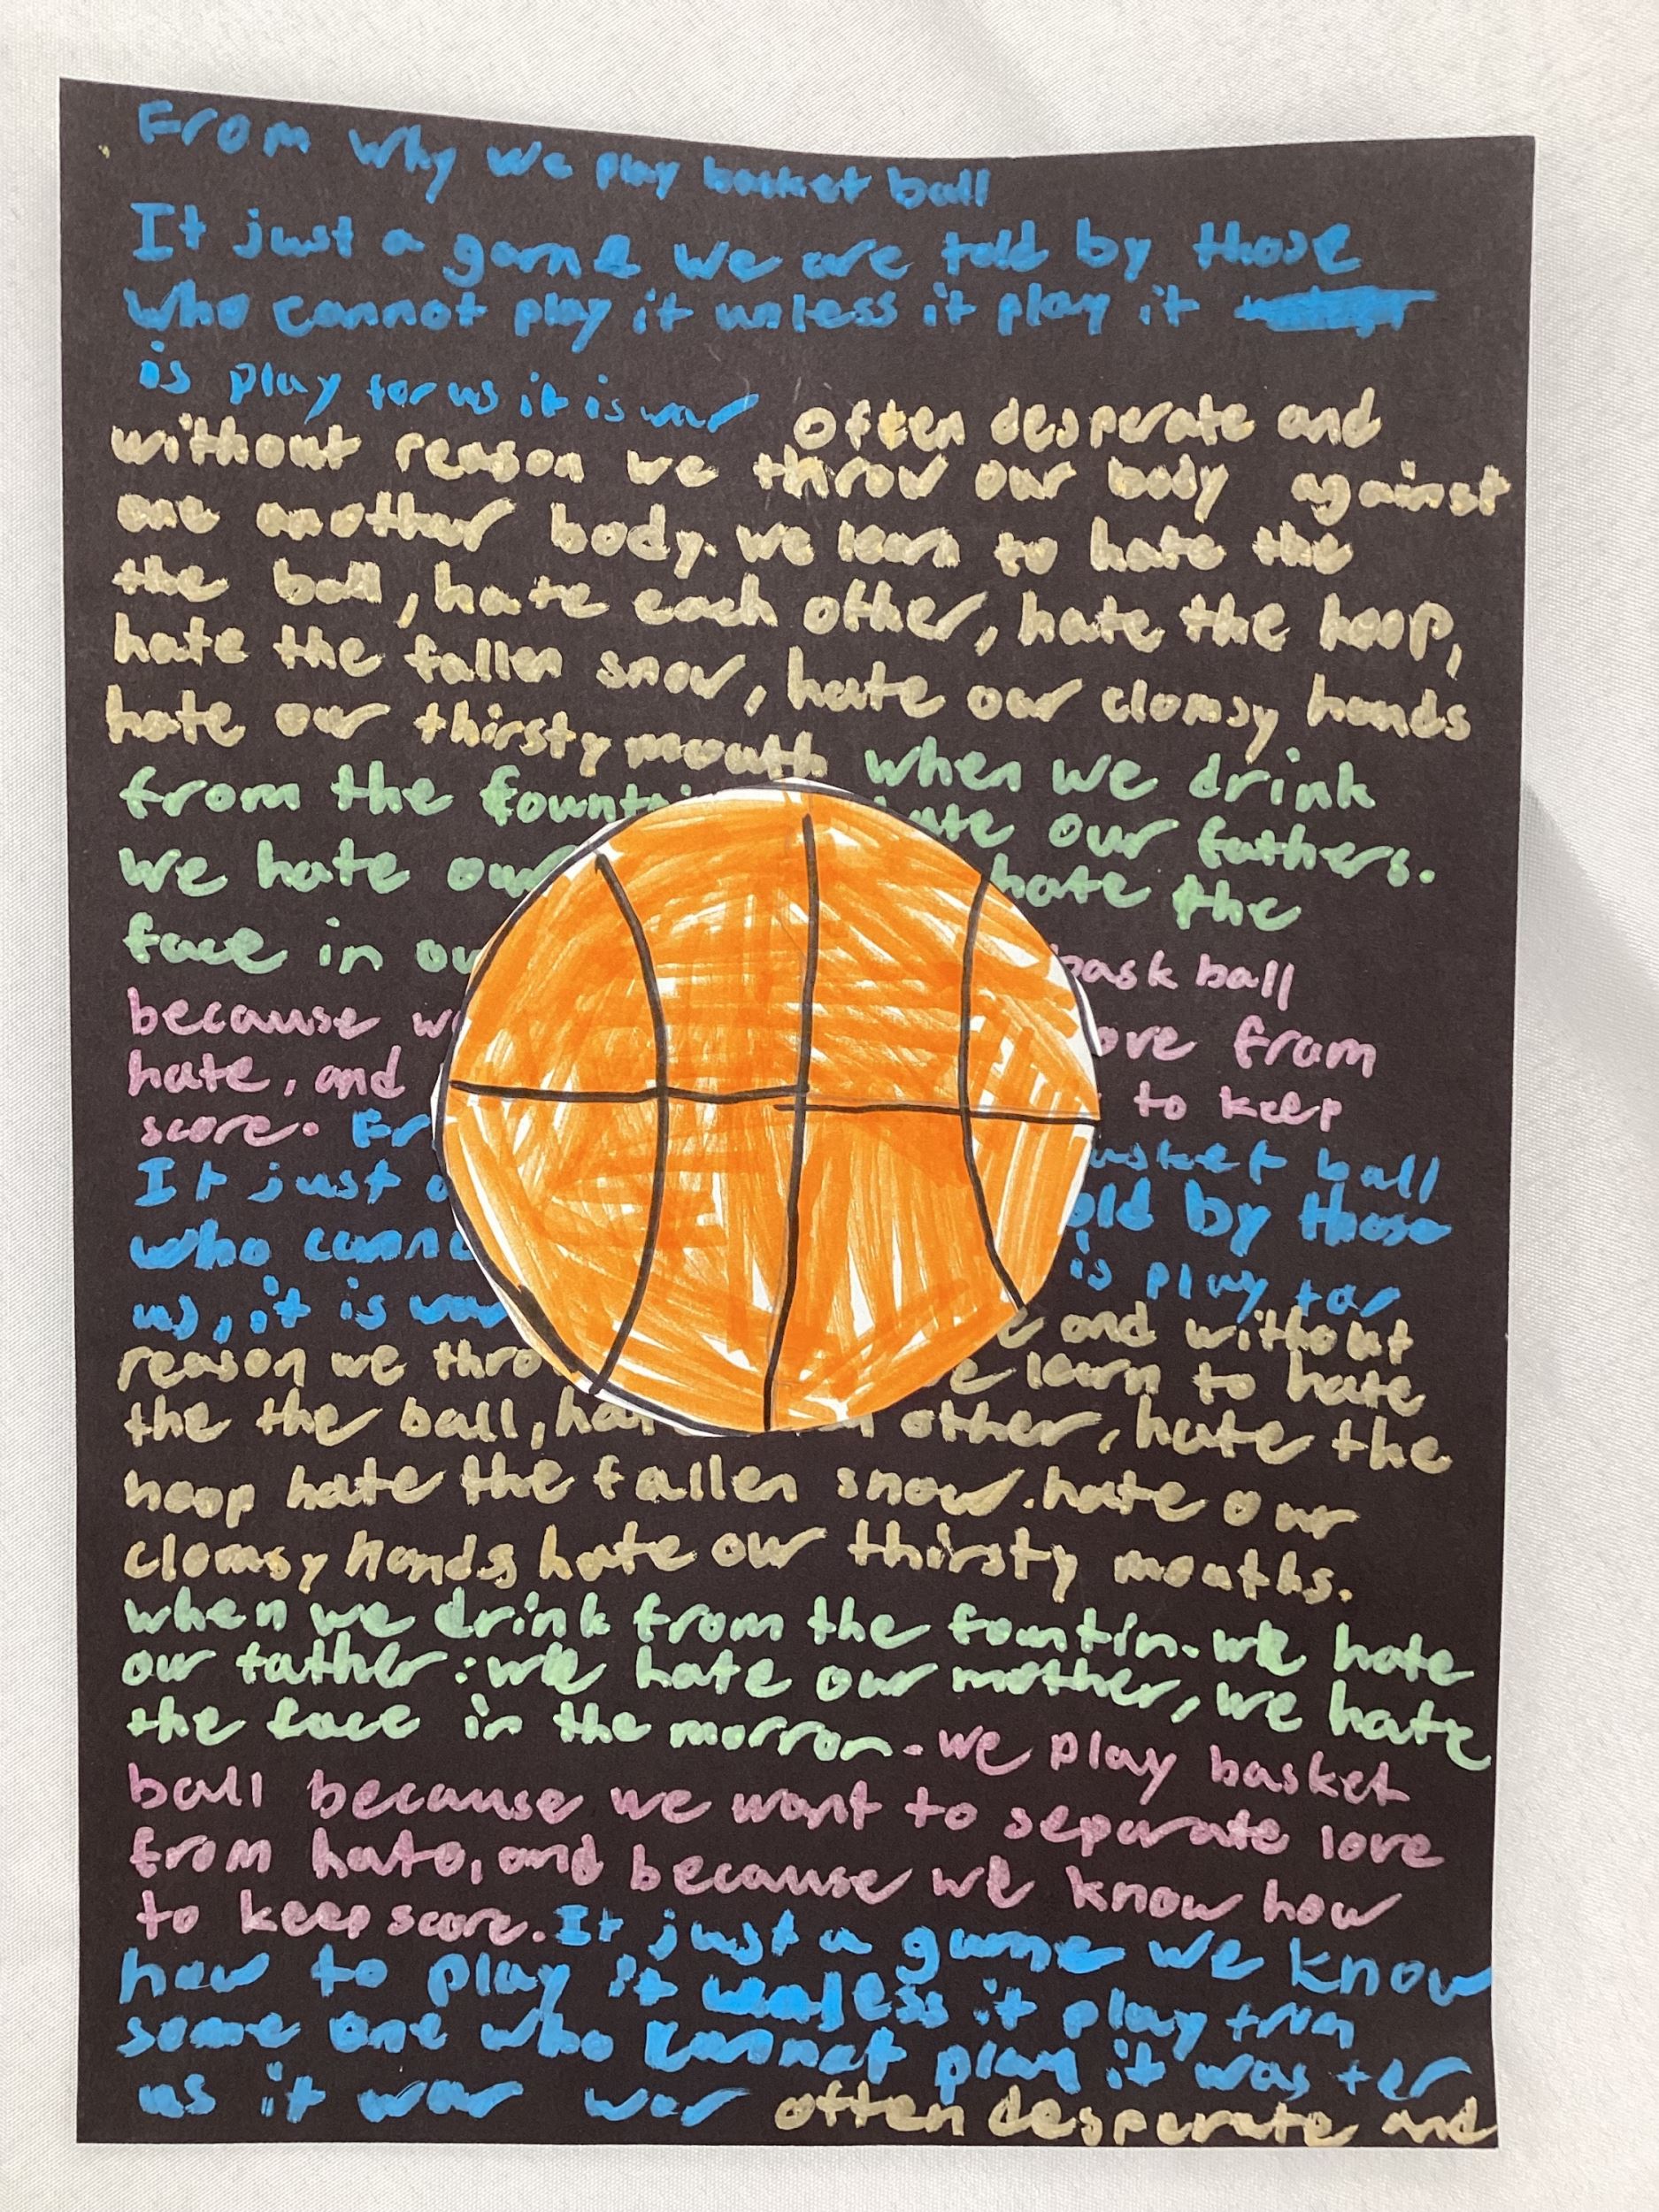 From why we play basket ball
It just a game we are told by those
who cannot play it unless it play it
is play for us it is war often desperate and
without reason we throw our body against
one another body. we learn to hate the
the ball, hate each other, hate the hoop,
hate the fallen snow, hate our clomsy hands
hate our thirsty mouth when we drink
from the fount ate our fathers.
we hate our hate the
face in ou bask ball
because we ove from
hate, and to keep
score. Fr asket ball
It just a old by those
who canno is play for
us, it is war e and without
reason we thro e learn to hate
the the ball, hat other, hate the
hoop hate the fallen snow. hate our
clomsy hands hate our thirsty mouths.
when we drink from the fountin. we hate
our father: we hate our mother, we hate
the face in the morror. we play basket
ball because we want to separate love
from hate, and because we know how
to keep score. It just a game we know
how to play it unless it play from
some one who cannot play it was ter
us it war war often desperate and